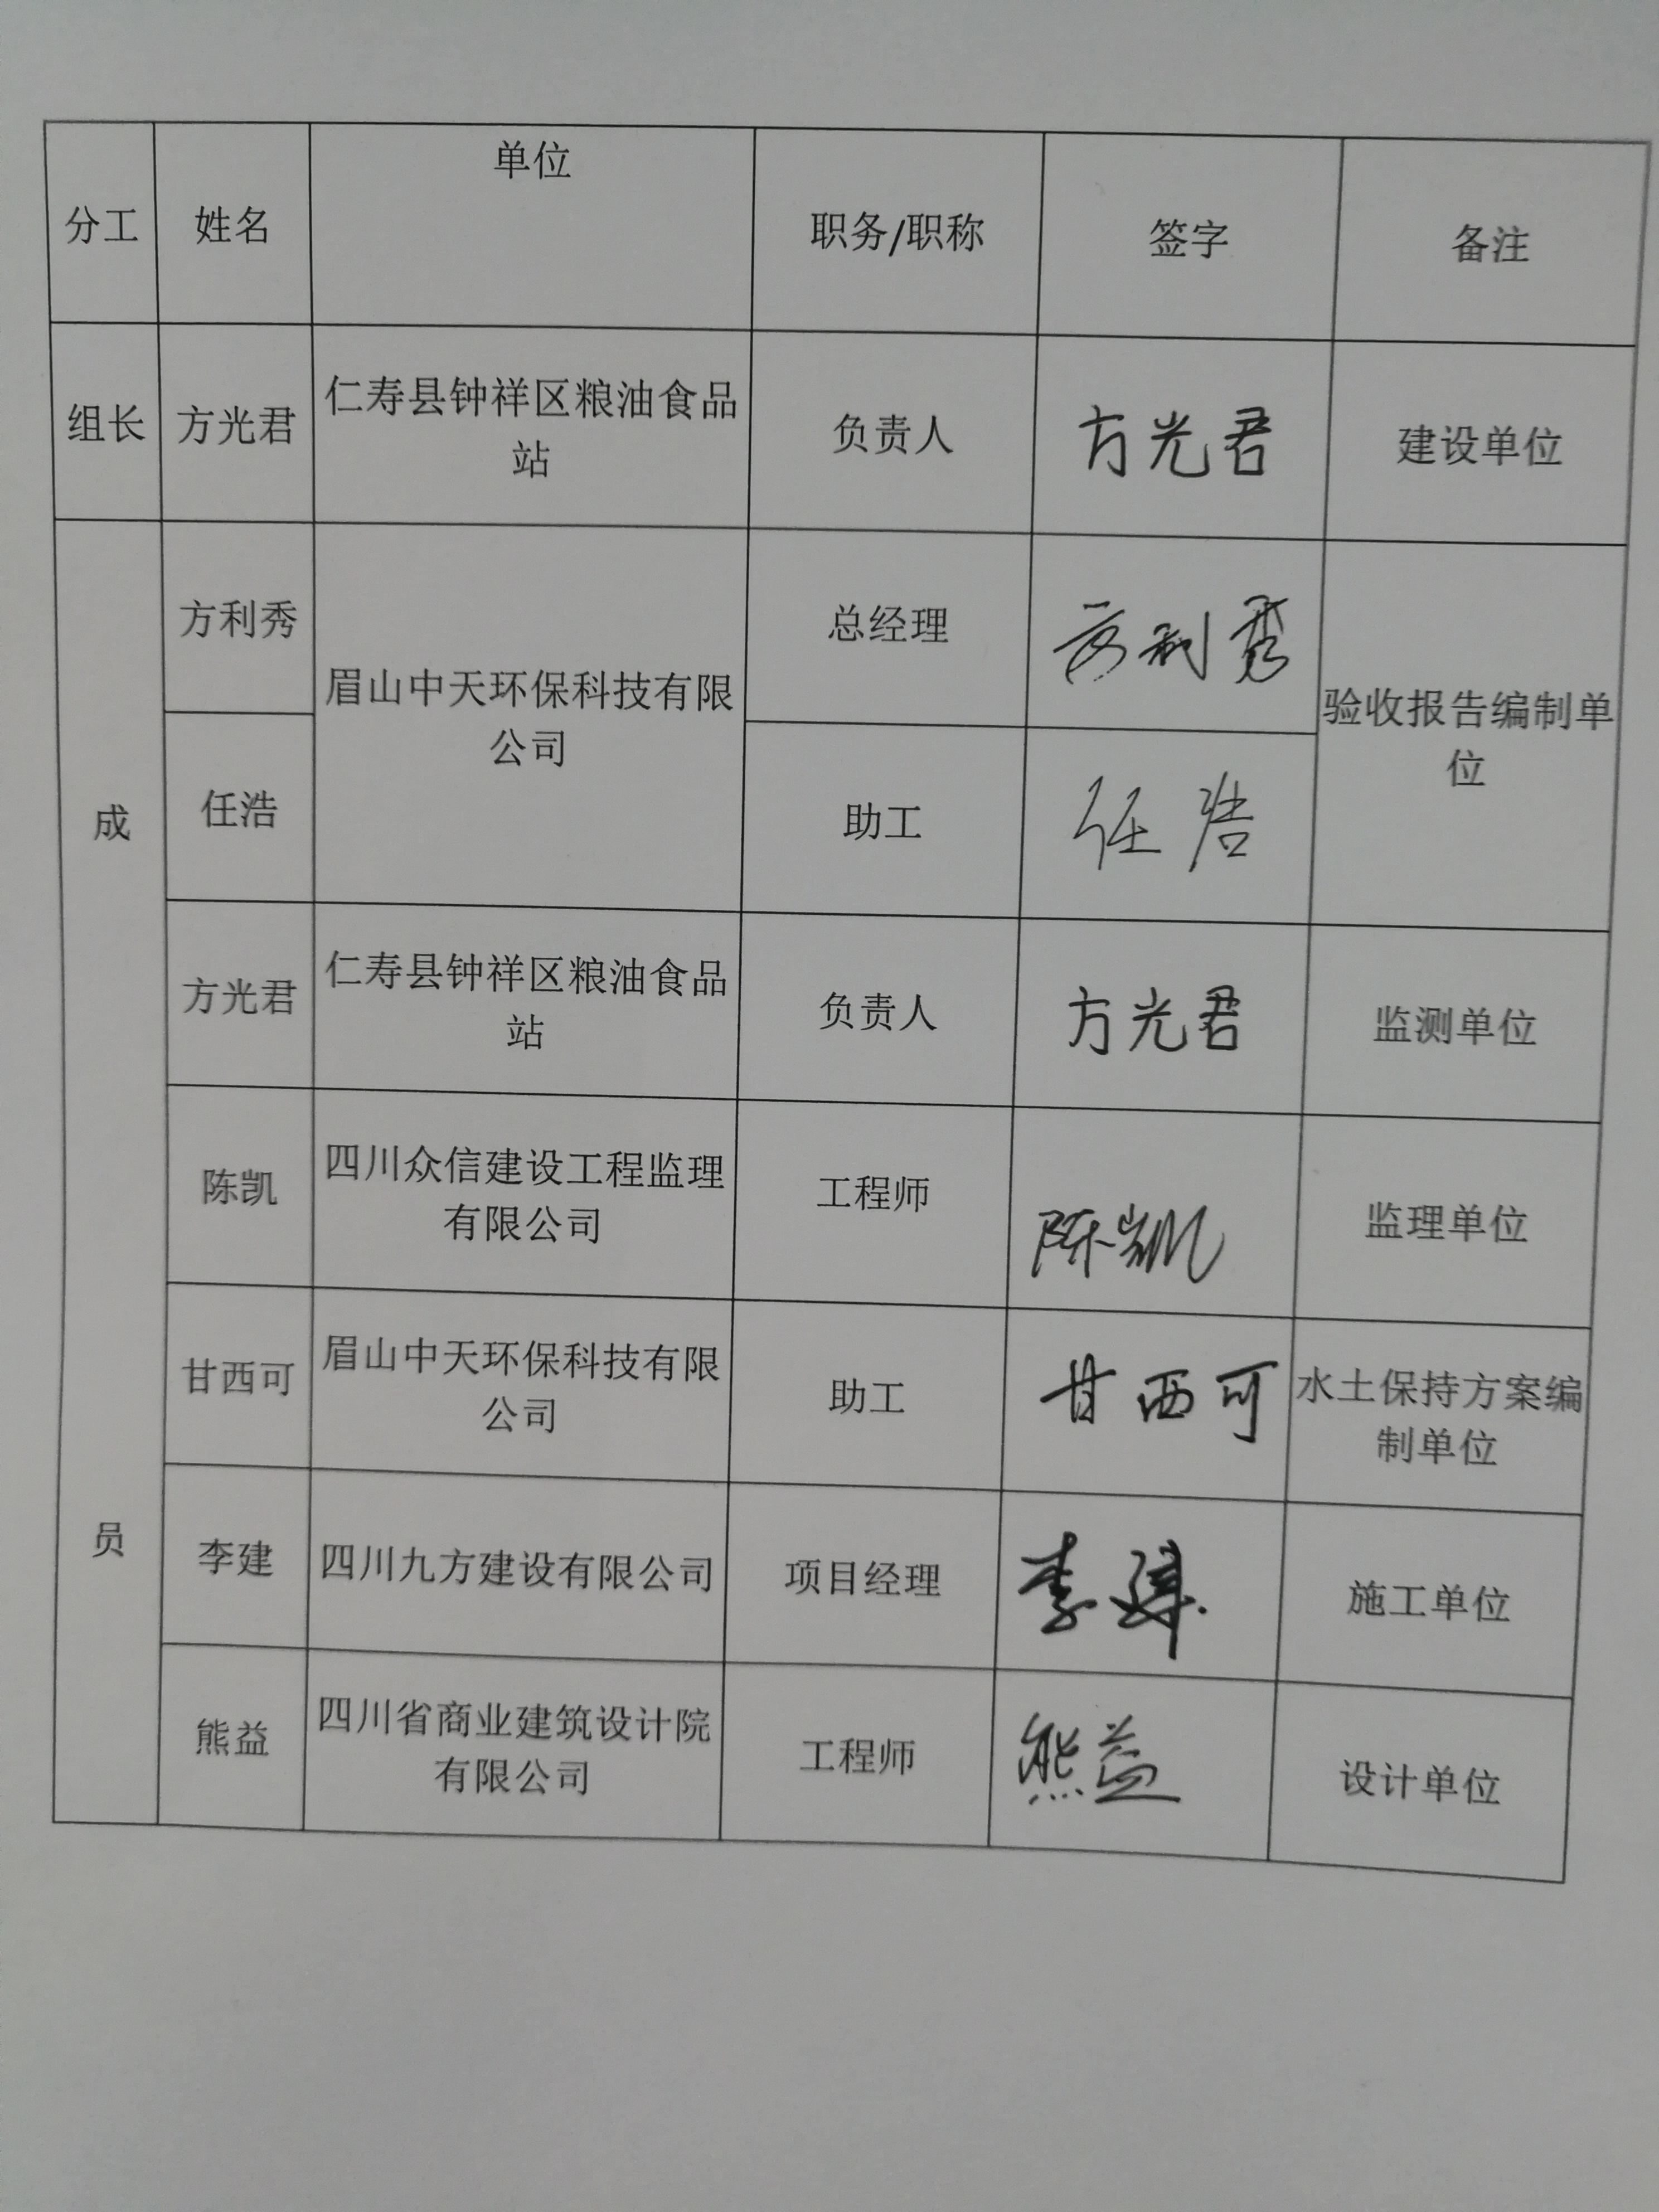 分工 姓名 单位 职务/职称 签字 备注
组长 方光君 仁寿县钟祥区粮油食品 负责人 方光君 建设单位
站
成
员
方利秀 眉山中天环保科技有限 总经理 方利秀 验收报告编制单
公司 位
任浩 助工 任浩
方光君 仁寿县钟祥区粮油食品 负责人 方光君 监测单位
站
陈凯 四川众信建设工程监理 工程师 陈凯 监理单位
有限公司
甘西可 眉山中天环保科技有限 助工 甘西可 水土保持方案编
公司 制单位
李建 四川九方建设有限公司 项目经理 李建 施工单位
熊益 四川省商业建筑设计院 工程师 熊益 设计单位
有限公司